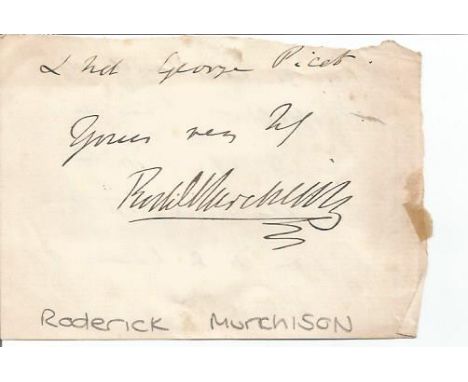 & not George Picet.
Yours very tly
Rod I Murchison
Roderick MurchISON